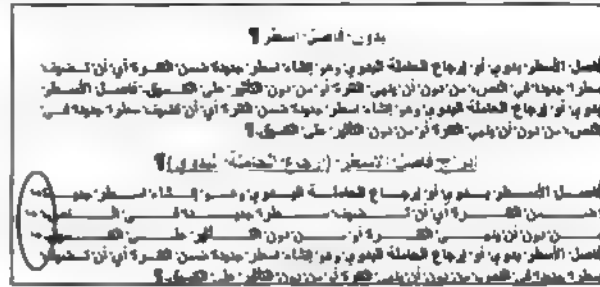 بدون فاصل أسطر
فاصل الأسطر يدوي أو إرجاع الحاملة اليدوي وهو إنشاء أسطر جديدة ضمن الفقرة أي أن تضيف
سطرا جديدا في النص من دون أن ينهي الفقرة أو من دون التأثير على التنسيق فاصل الأسطر
يدوي أو إرجاع الحاملة اليدوي وهو إنشاء أسطر جديدة ضمن الفقرة أي أن تضيف سطرا جديدا في
النص من دون أن ينهي الفقرة أو من دون التأثير على التنسيق
إدراج فاصل الأسطر (إرجاع الحاملة اليدوي)
فاصل الأسطر يدوي أو إرجاع الحاملة اليدوي وهو إنشاء أسطر جديدة
ضمن الفقرة أي أن تضيف سطرا جديدا في النص
من دون أن ينهي الفقرة أو من دون التأثير على التنسيق
فاصل الأسطر يدوي أو إرجاع الحاملة اليدوي وهو إنشاء أسطر جديدة ضمن الفقرة أي أن تضيف
سطرا جديدا في النص من دون أن ينهي الفقرة أو من دون التأثير على التنسيق